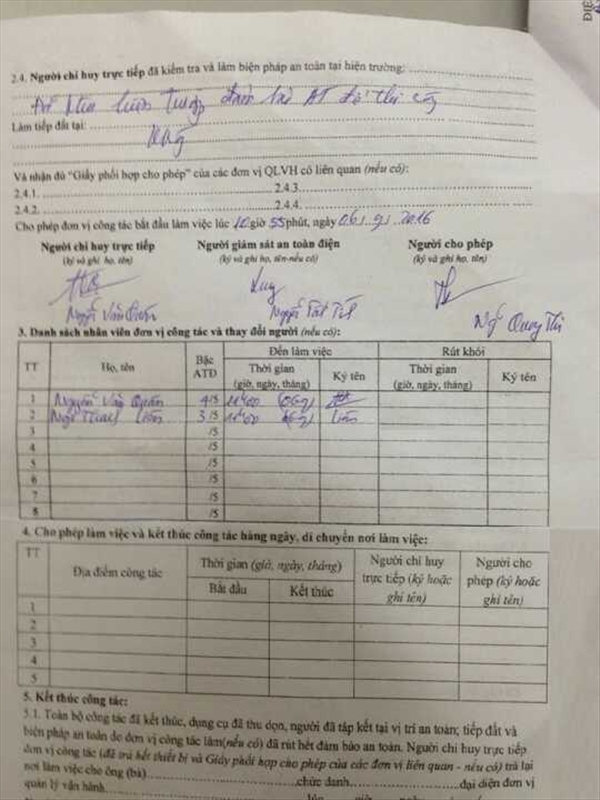 ĐIỆ
2.4. Người chỉ huy trực tiếp đã kiểm tra và làm biện pháp an toàn tại hiện trường:
Làm tiếp đất tại:
Không
Và nhận đủ "Giấy phối hợp cho phép" của các đơn vị QLVH có liên quan (nếu có):
2.4.1. 2.4.3.
2.4.2. 2.4.4.
Cho phép đơn vị công tác bắt đầu làm việc lúc 10 giờ 55 phút, ngày 06/9/2016
Người chỉ huy trực tiếp Người giám sát an toàn điện Người cho phép
(ký và ghi họ, tên) (ký và ghi họ, tên-nếu có) (ký và ghi họ, tên)
Nguyễn Văn Quán Nguyễn Ng Quang Thi
3. Danh sách nhân viên đơn vị công tác và thay đổi người (nếu có):
TT Họ, tên Bậc ATĐ Đến làm việc Rút khỏi
Thời gian (giờ, ngày, tháng) Ký tên Thời gian (giờ, ngày, tháng) Ký tên
1 Nguyễn Văn Quán 4/5 11h00
2 3/5 11h00
3 /5
4 /5
5 /5
6 /5
7 /5
8 /5
4. Cho phép làm việc và kết thúc công tác hàng ngày, di chuyển nơi làm việc:
TT Địa điểm công tác Thời gian (giờ, ngày, tháng) Người chỉ huy trực tiếp (ký hoặc ghi tên) Người cho phép (ký hoặc ghi tên)
Bắt đầu Kết thúc
1
2
3
4
5
5. Kết thúc công tác:
5.1. Toàn bộ công tác đã kết thúc, dụng cụ đã thu dọn, người đã tập kết tại vị trí an toàn; tiếp đất và
biện pháp an toàn do đơn vị công tác làm(nếu có) đã rút hết đảm bảo an toàn. Người chỉ huy trực tiếp
đơn vị công tác (đã trả hết thiết bị và Giấy phối hợp cho phép của các đơn vị liên quan - nếu có) trả lại
nơi làm việc cho ông (bà) chức danh đại diện đơn vị
quản lý vận hành.
lúc giờ ngày